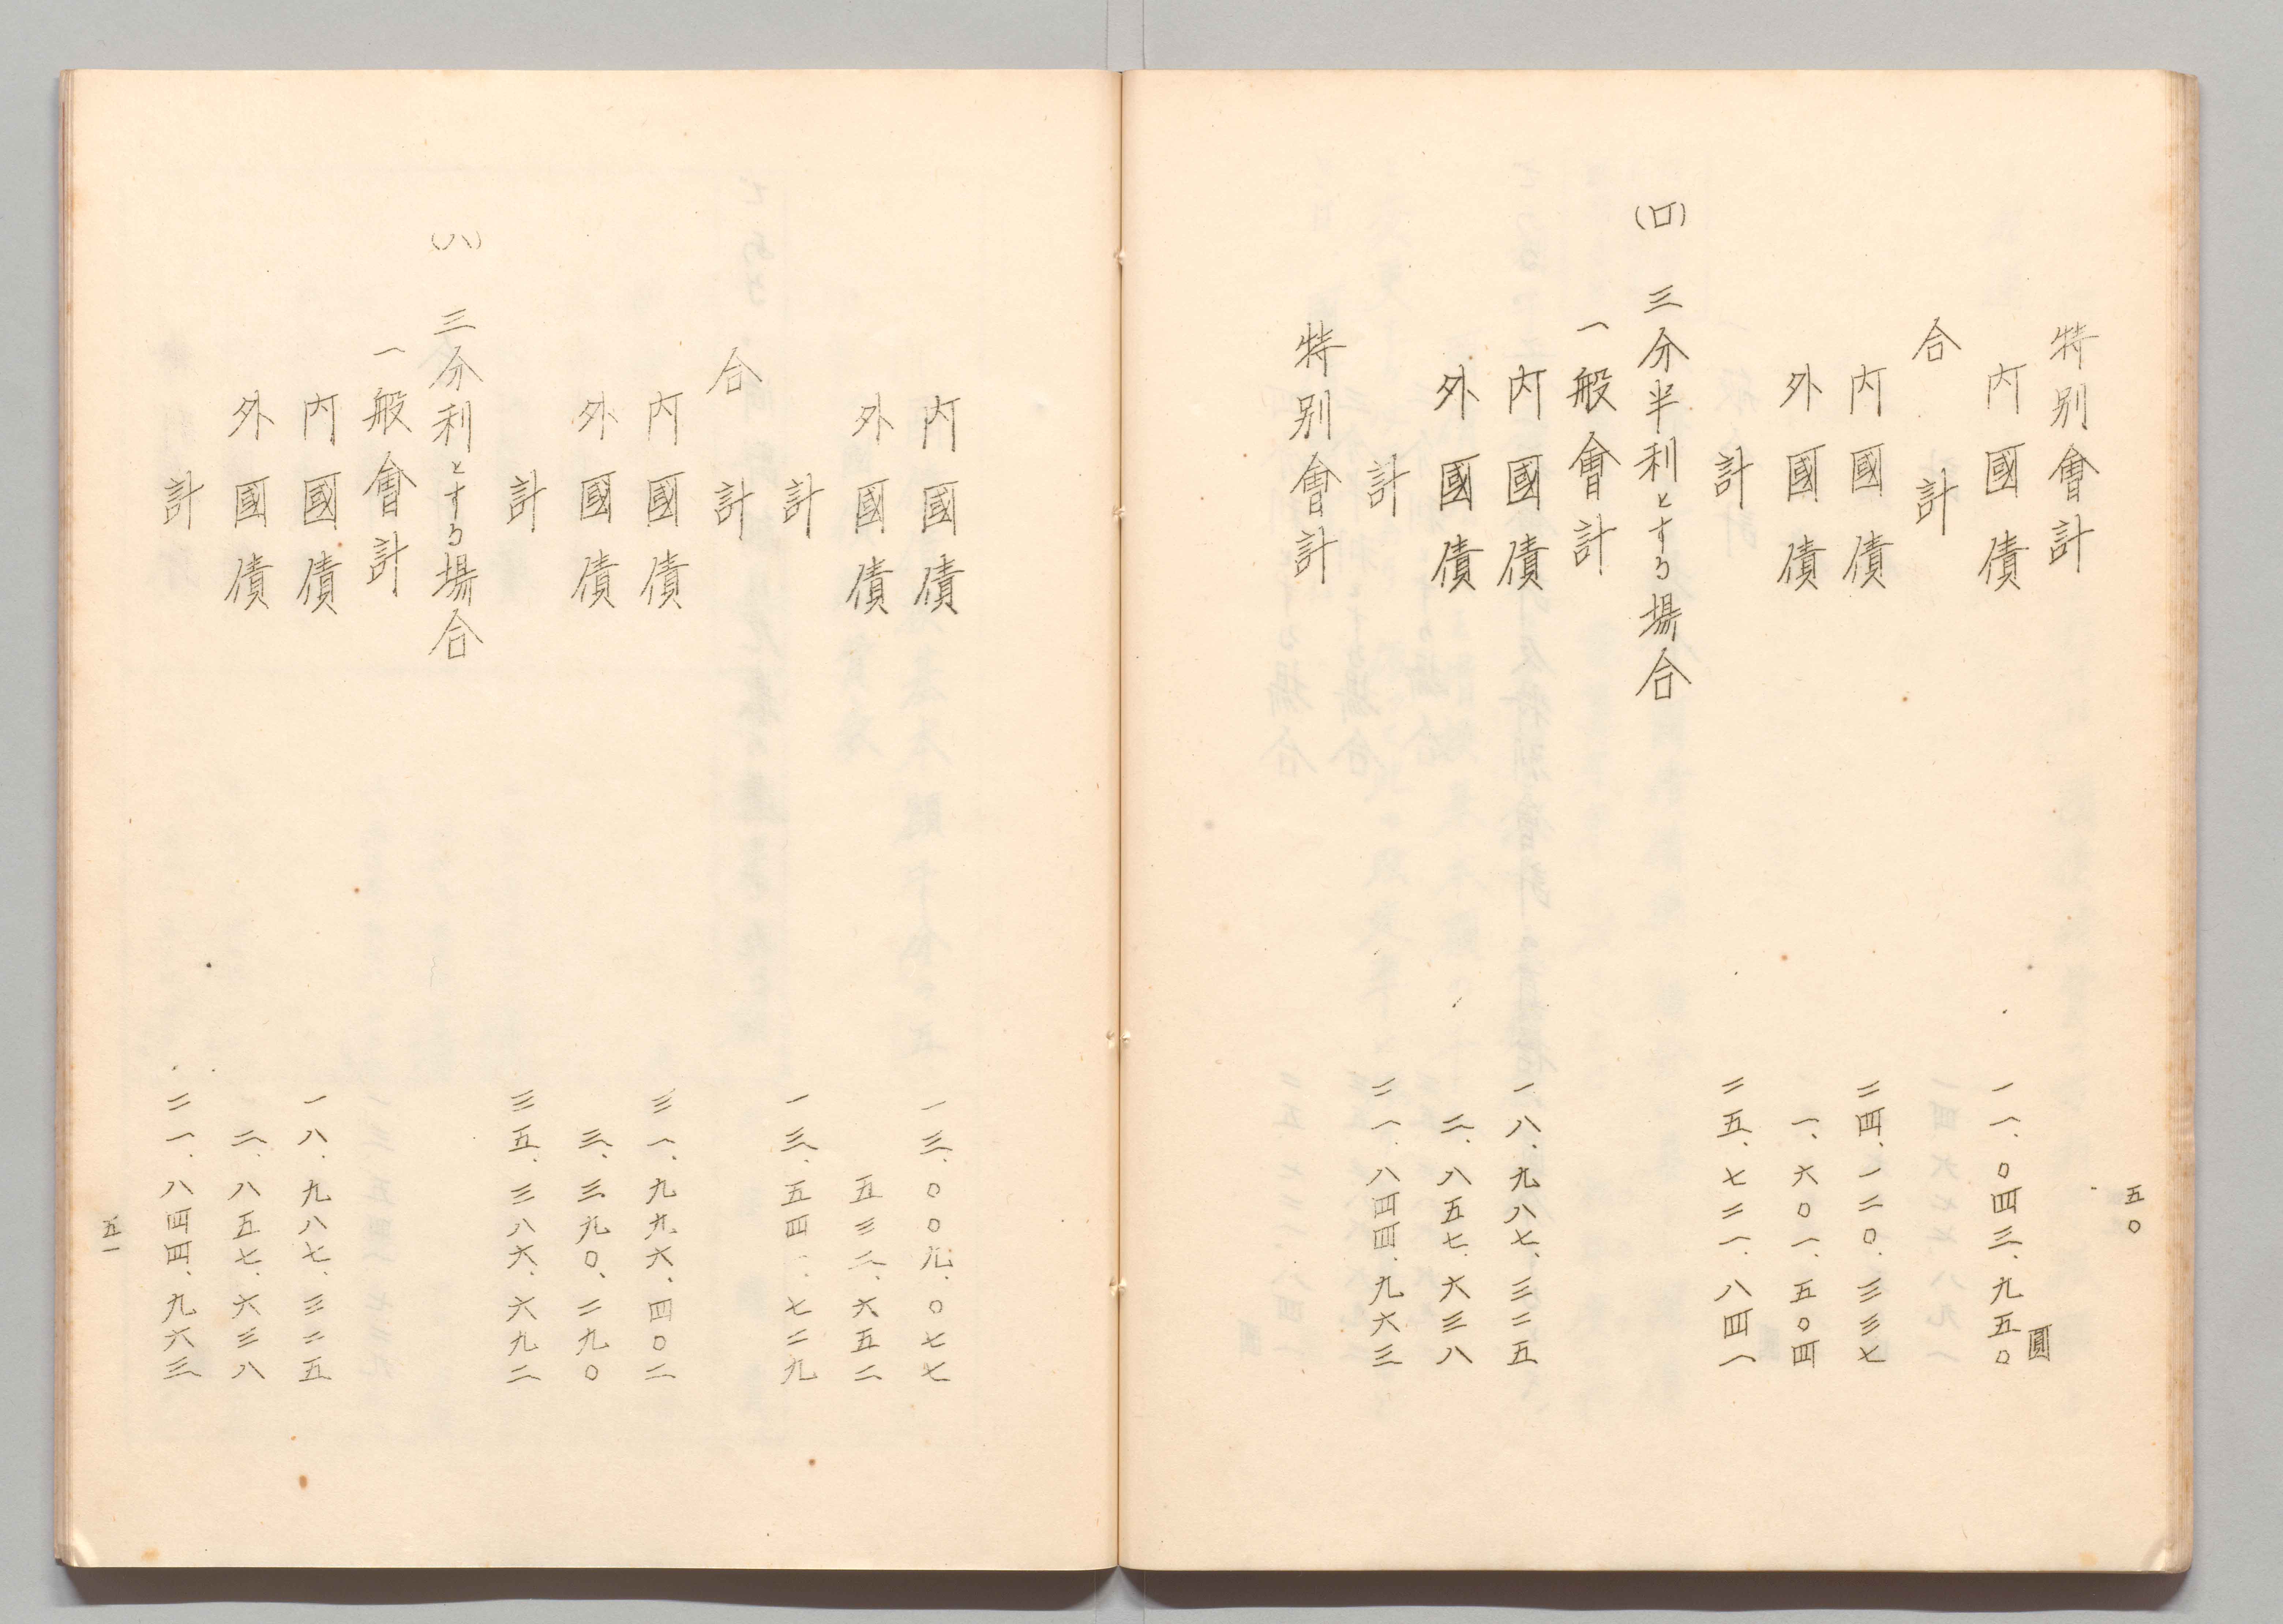 五〇
特別會計
内國債 一一、〇四三、九五〇圓
合計
内國債 二四、一二〇、三三七
外國債 一、六〇一、五〇四
計 二五、七二一、八四一
(ロ) 三分半利とする場合
一般會計
内國債 一八、九八七、三二五
外國債 二、八五七、六三八
計 二一、八四四、九六三
特別會計
内國債 一三、〇〇九、〇七七
外國債 五三二、六五二
計 一三、五四一、七二九
合計
内國債 三一、九九六、四〇二
外國債 三、三九〇、二九〇
計 三五、三八六、六九二
(ハ) 三分利とする場合
一般會計
内國債 一八、九八七、三二五
外國債 二、八五七、六三八
計 二一、八四四、九六三
五一